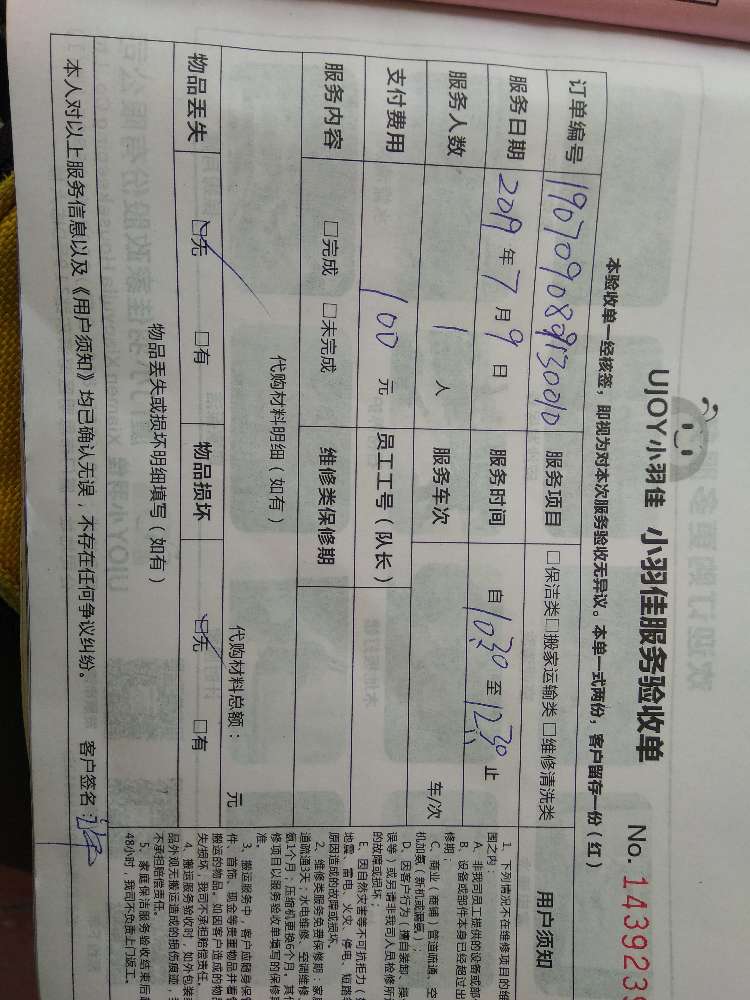 UJOY小羽佳 小羽佳服务验收单 No. 143923
本验收单一经核签，即视为对本次服务验收无异议。本单一式两份，客户留存一份（红）
订单编号 服务项目 □保洁类□搬家运输类□维修清洗类 用户须知
服务日期 2019 年 7 月 9 日 服务时间 自 10:30 至 12:30 止
服务人数 1 人 服务车次 车/次
支付费用 100 元 员工工号（队长）
服务内容 □完成 □未完成 维修类保修期
代购材料明细（如有） 代购材料总额： 元
物品丢失 □无 □有 物品损坏 □无 □有
物品丢失或损坏明细填写（如有）
本人对以上服务信息以及《用户须知》均已确认无误，不存在任何争议纠纷。 客户签名：
1、下列情况不在维修项目的维
围之内：
A、非我司员工提供的设备或部
B、设备或部件本身已经超过出
修期；
C、商业（商铺）管道疏通、空
机加氨（新机或漏氨）；
D、因客户行为（擅自装制，操
误等）或另请非我司人员检修所
的故障或损坏；
E、因自然灾害等不可抗拒力（如
地震、雷电、火灾、停电、短路
原因造成的故障或损坏。
2、维修类服务免费保修期：家
道疏通3天；水电维修、空调维修
氨1个月；压缩机更换6个月，其
修项目以服务验收单填写的保修
准。
3、搬运服务中，客户应随身保
件、首饰、现金等贵重物品并看
搬运的物品。如因客户造成的物
失/损坏，我司不承担赔偿责任。
4、搬运服务验收时，如外包装
品外观无搬运造成的损伤痕迹，
不承担赔偿责任。
5、家庭保洁服务验收结束后
48小时，我司不负责上门返工。